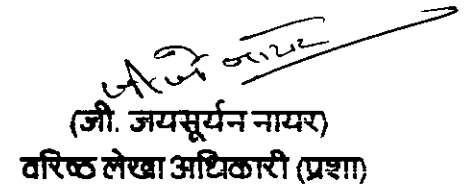 जी जे नायर
(जी. जयसूर्यन नायर)
वरिष्ठ लेखा अधिकारी (प्रशा)